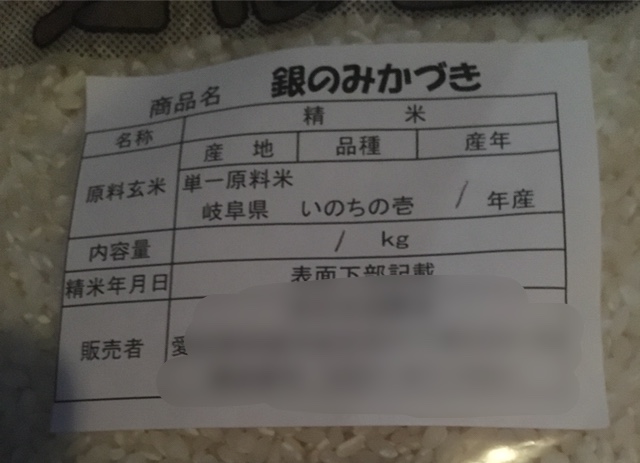 商品名 銀のみかづき
名称 精 米
原料玄米 産 地 品種 産年
単一原料米
岐阜県 いのちの壱 / 年産
内容量 / kg
精米年月日 表面下部記載
販売者 愛